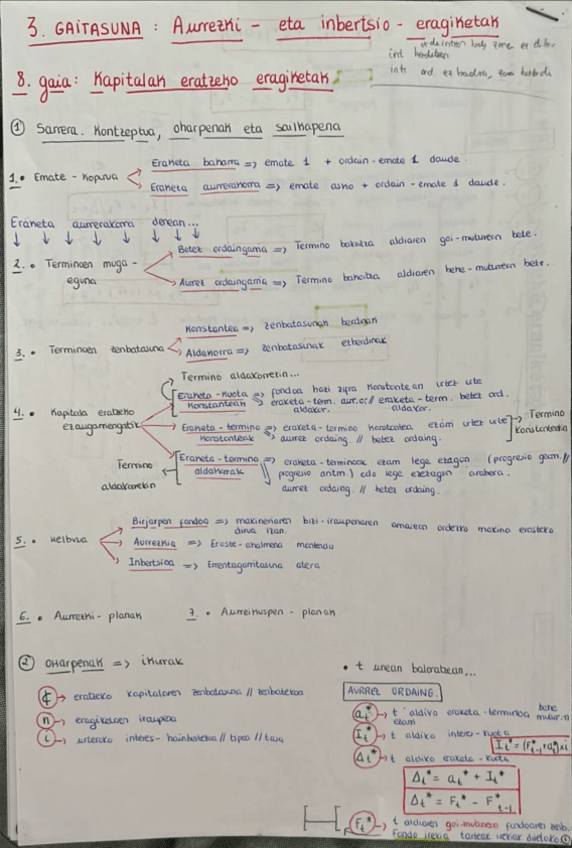 3. GAITASUNA : Aurrezki - eta inbertsio - eragiketak
8. gaia: Kapitalak eratzeko eragiketak
int ord. ez badira,
① Sarrera. Kontzeptua, oharpenak eta sailkapena
1. • Emate - kopurua
Eraketa bakarra => emate 1 + ordain - emate 1 daude.
Eraketa aurrerakorra => emate asko + ordain - emate 1 daude.
Eraketa aurrerakorra denean...
2. • Terminoen muga - eguna
Betez ordaingarria => Termino bakoitza aldiaren goi - muturrean bete.
Aurrez ordaingarria => Termino bakoitza aldiaren behe - muturrean bete.
3. • Terminoen zenbatasuna
Konstantea => zenbatasunak berdinak
Aldakorra => zenbatasunak ezberdinak
Termino aldakorrekin...
4. • Kapitala eratzeko ezaugarriengatik
Eraketa - kuota konstanteak => fondoa hazi zifra konstantean urtez urte
eraketa - term. aurr. or. // eraketa - term. betez ord.
aldakor. aldakor.
Eraketa - termino konstanteak => eraketa - termino konstantea ezarri urtez urte
aurrez ordaing. // betez ordaing.
Termino konstantea
Eraketa - termino aldakorrak => eraketa - terminoak ezarri lege ezagun (progresio geom. //
progresio aritm.) edo lege ezezagun arabera.
aurrez ordaing. // betez ordaing.
Termino aldakorrekin
5. • Helburua
Birjarpen fondoa => makineriaren bizi - iraupenaren amaieran ordezko makina erosteko
dirua izan.
Aurrezkia => Eroste - ahalmena mantendu
Inbertsioa => Errentagarritasuna atera
6. • Aurrezki - planak 7. • Aurreikuspen - planak
② Oharpenak => ikurrak
¢ → eratzeko kapitalaren zenbatasuna // zenbatekoa
n → eragiketaren iraupena
i → urteroko interes - hainbatekoa // tipoa // tasa
• t unean baloratzean...
AURREZ ORDAING.
at* → t aldiko eraketa - terminoa behe mutur.n
ezarri
It* → t aldiko interes - kuota
It* = (F*t-1 + at*) x i
Δt* → t aldiko eraketa - kuota
Δt* = at* + It*
Δt* = Ft* - F*t-1
Ft* → t aldiaren goi - muturreko fondoaren zenb.